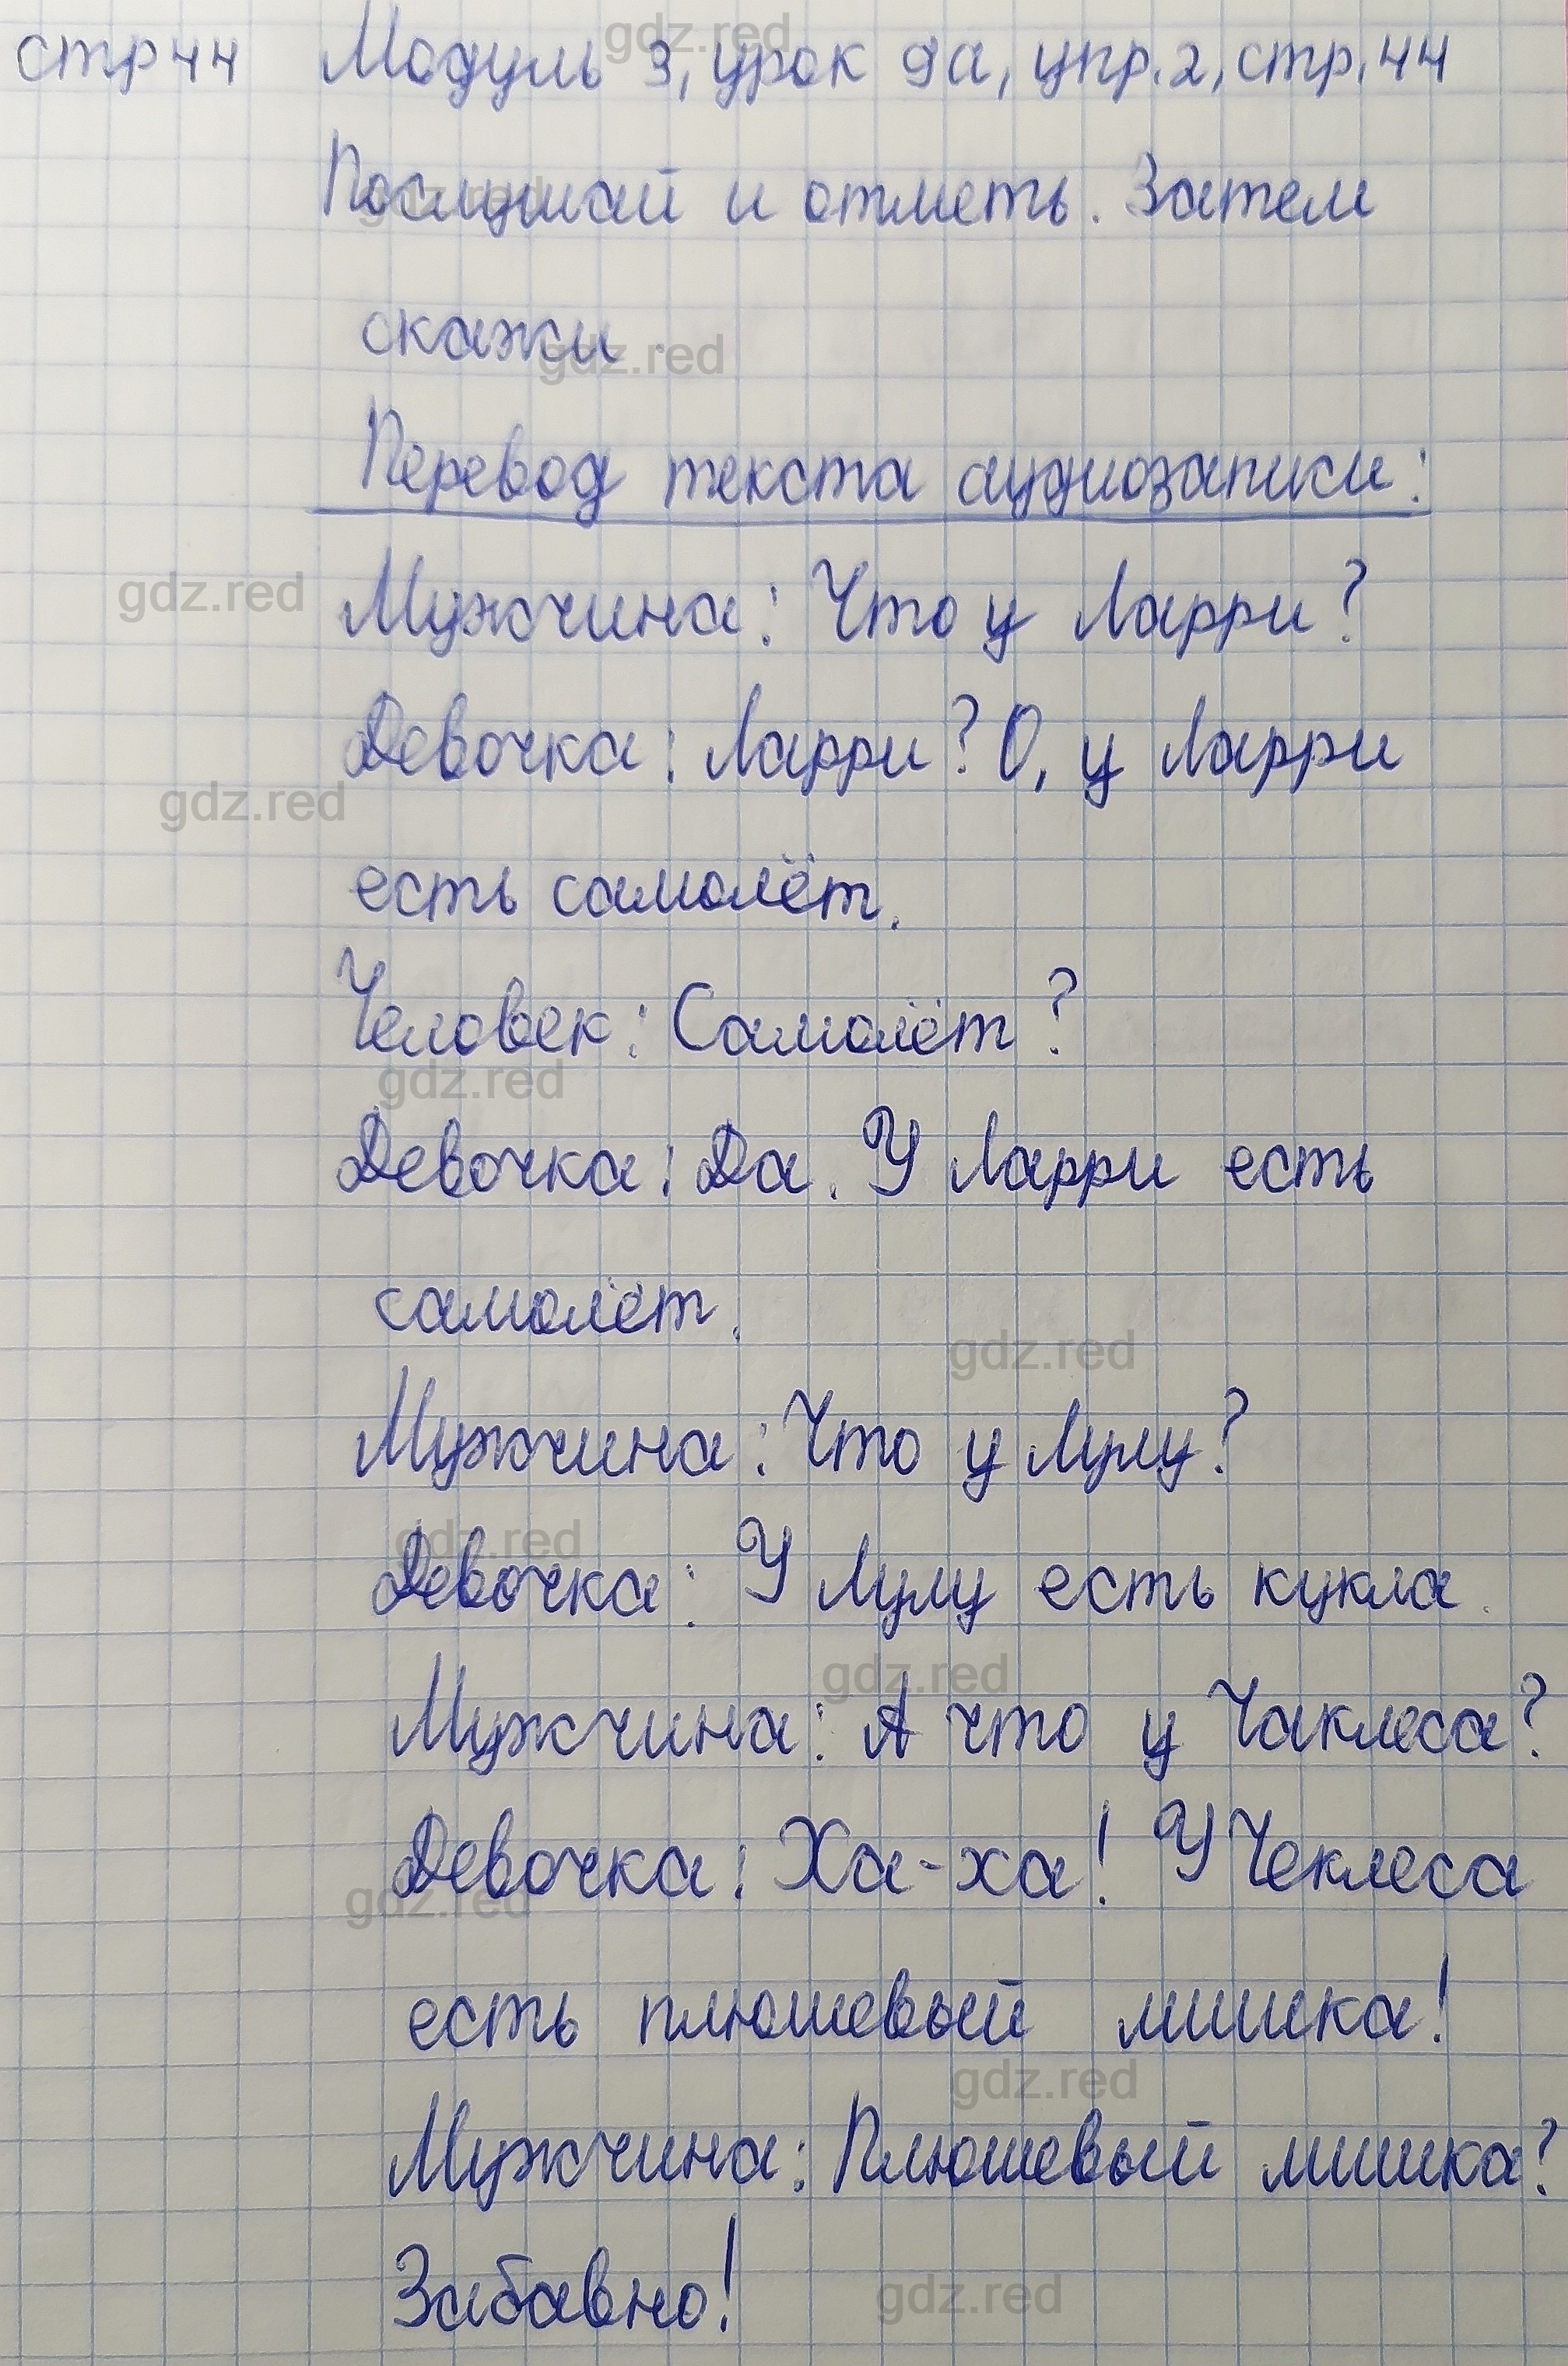 стр 44 Модуль 3, урок 9а, упр. 2, стр. 44
Послушай и отметь. Затем
скажи.
Перевод текста аудиозаписи:
Мужчина: Что у Ларри?
Девочка: Ларри? О, у Ларри
есть самолёт.
Человек: Самолёт?
Девочка: Да. У Ларри есть
самолёт.
Мужчина: Что у Лулу?
Девочка: У Лулу есть кукла.
Мужчина: А что у Чаклеса?
Девочка: Ха-ха! У Чеклеса
есть плюшевый мишка!
Мужчина: Плюшевый мишка?
Забавно!
gdz.red
gdz.red
gdz.red
gdz.red
gdz.red
gdz.red
gdz.red
gdz.red
gdz.red
gdz.red
gdz.red
gdz.red